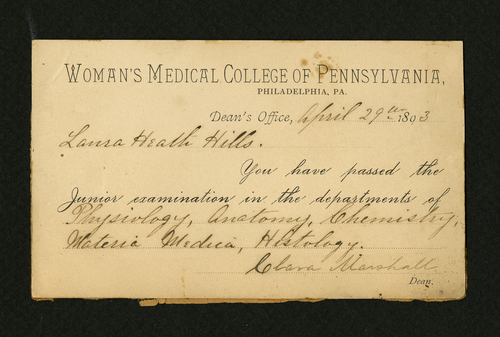 WOMAN'S MEDICAL COLLEGE OF PENNSYLVANIA,
PHILADELPHIA, PA.
Dean's Office, April 29th 1893
Laura Heath Hills.
You have passed the
Junior examination in the departments of
Physiology, Anatomy, Chemistry,
Materia Medica, Histology.
Clara Marshall
Dean.